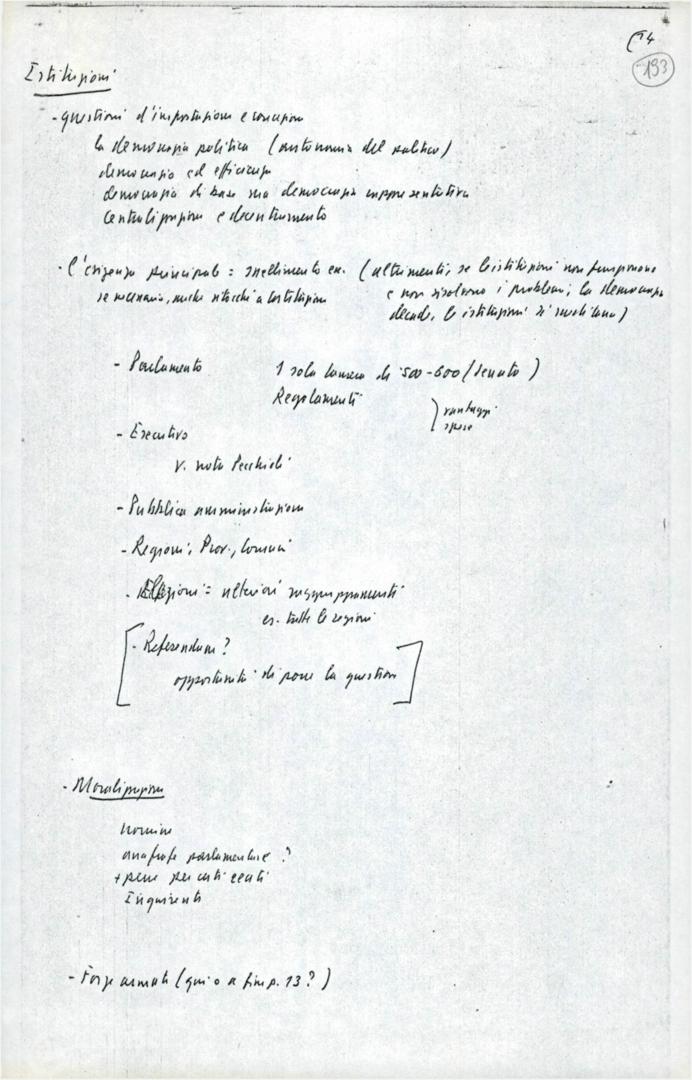 14
193
Istituzioni
- questioni d'impostazione e concezione
la democrazia politica (autonomia del politico)
democrazia ed efficienza
democrazia di base ma democrazia rappresentativa
centralizzazione e decentramento
- l'esigenza principale = snellimento ecc. (altrimenti, se le istituzioni non funzionano
se necessario, anche ritocchi a Costituzione
e non risolvono i problemi, la democrazia
decade, le istituzioni si
- Parlamento 1 sola Camera di 500-600 (Senato)
Regolamenti
) vantaggi
spese
- Esecutivo
v. nota Pecchioli
- Pubblica amministrazione
- Regioni, Prov., Comuni
- Elezioni = ulteriori raggruppamenti
es. tutte le regioni
[- Referendum?
opportunità di porre la question]
- Moralizzazione
nomine
anagrafe parlamentare?
+ pene per certi reati
Inquirente
- Forze armate (qui o a fine p. 13?)